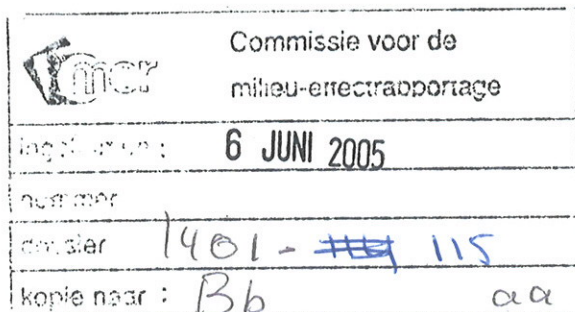 mer
Commissie voor de
milieu-effectrapportage
ingekomen : 6 JUNI 2005
nummer
dossier 1401 - 115
kopie naar : Bb aa